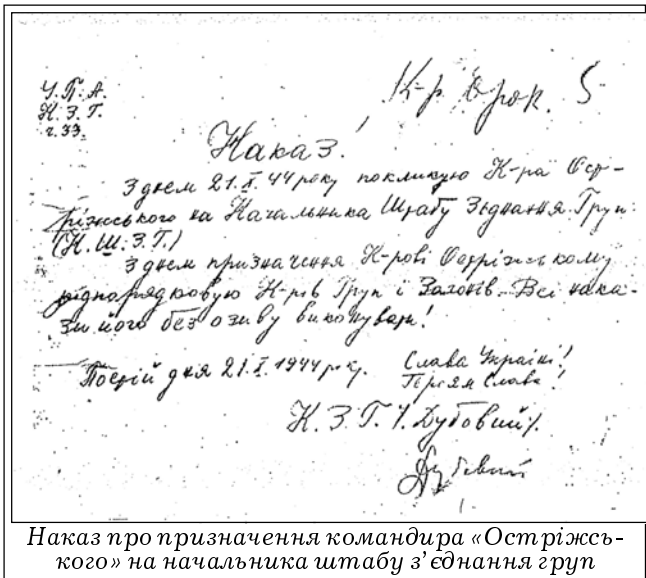 У.П.А.
К.З.Г.
ч. 33.
К-р Орок. 5
Наказ!
З днем 21.I.44 року покликую К-ра Ост-
ріжського на Начальника Штабу Зєднання Груп
(Н.Ш.З.Г.)
З днем призначення К-рові Остріжському
підпорядковую К-рів Груп і Загонів. Всі нака-
зи його без озиву виконувати!
Постій дня 21.I.1944 року.
Слава Україні!
Героям Слава!
К.З.Г. /.Дубовий/.
Дубовий
Наказ про призначення командира «Остріжсь-
кого» на начальника штабу з’єднання груп